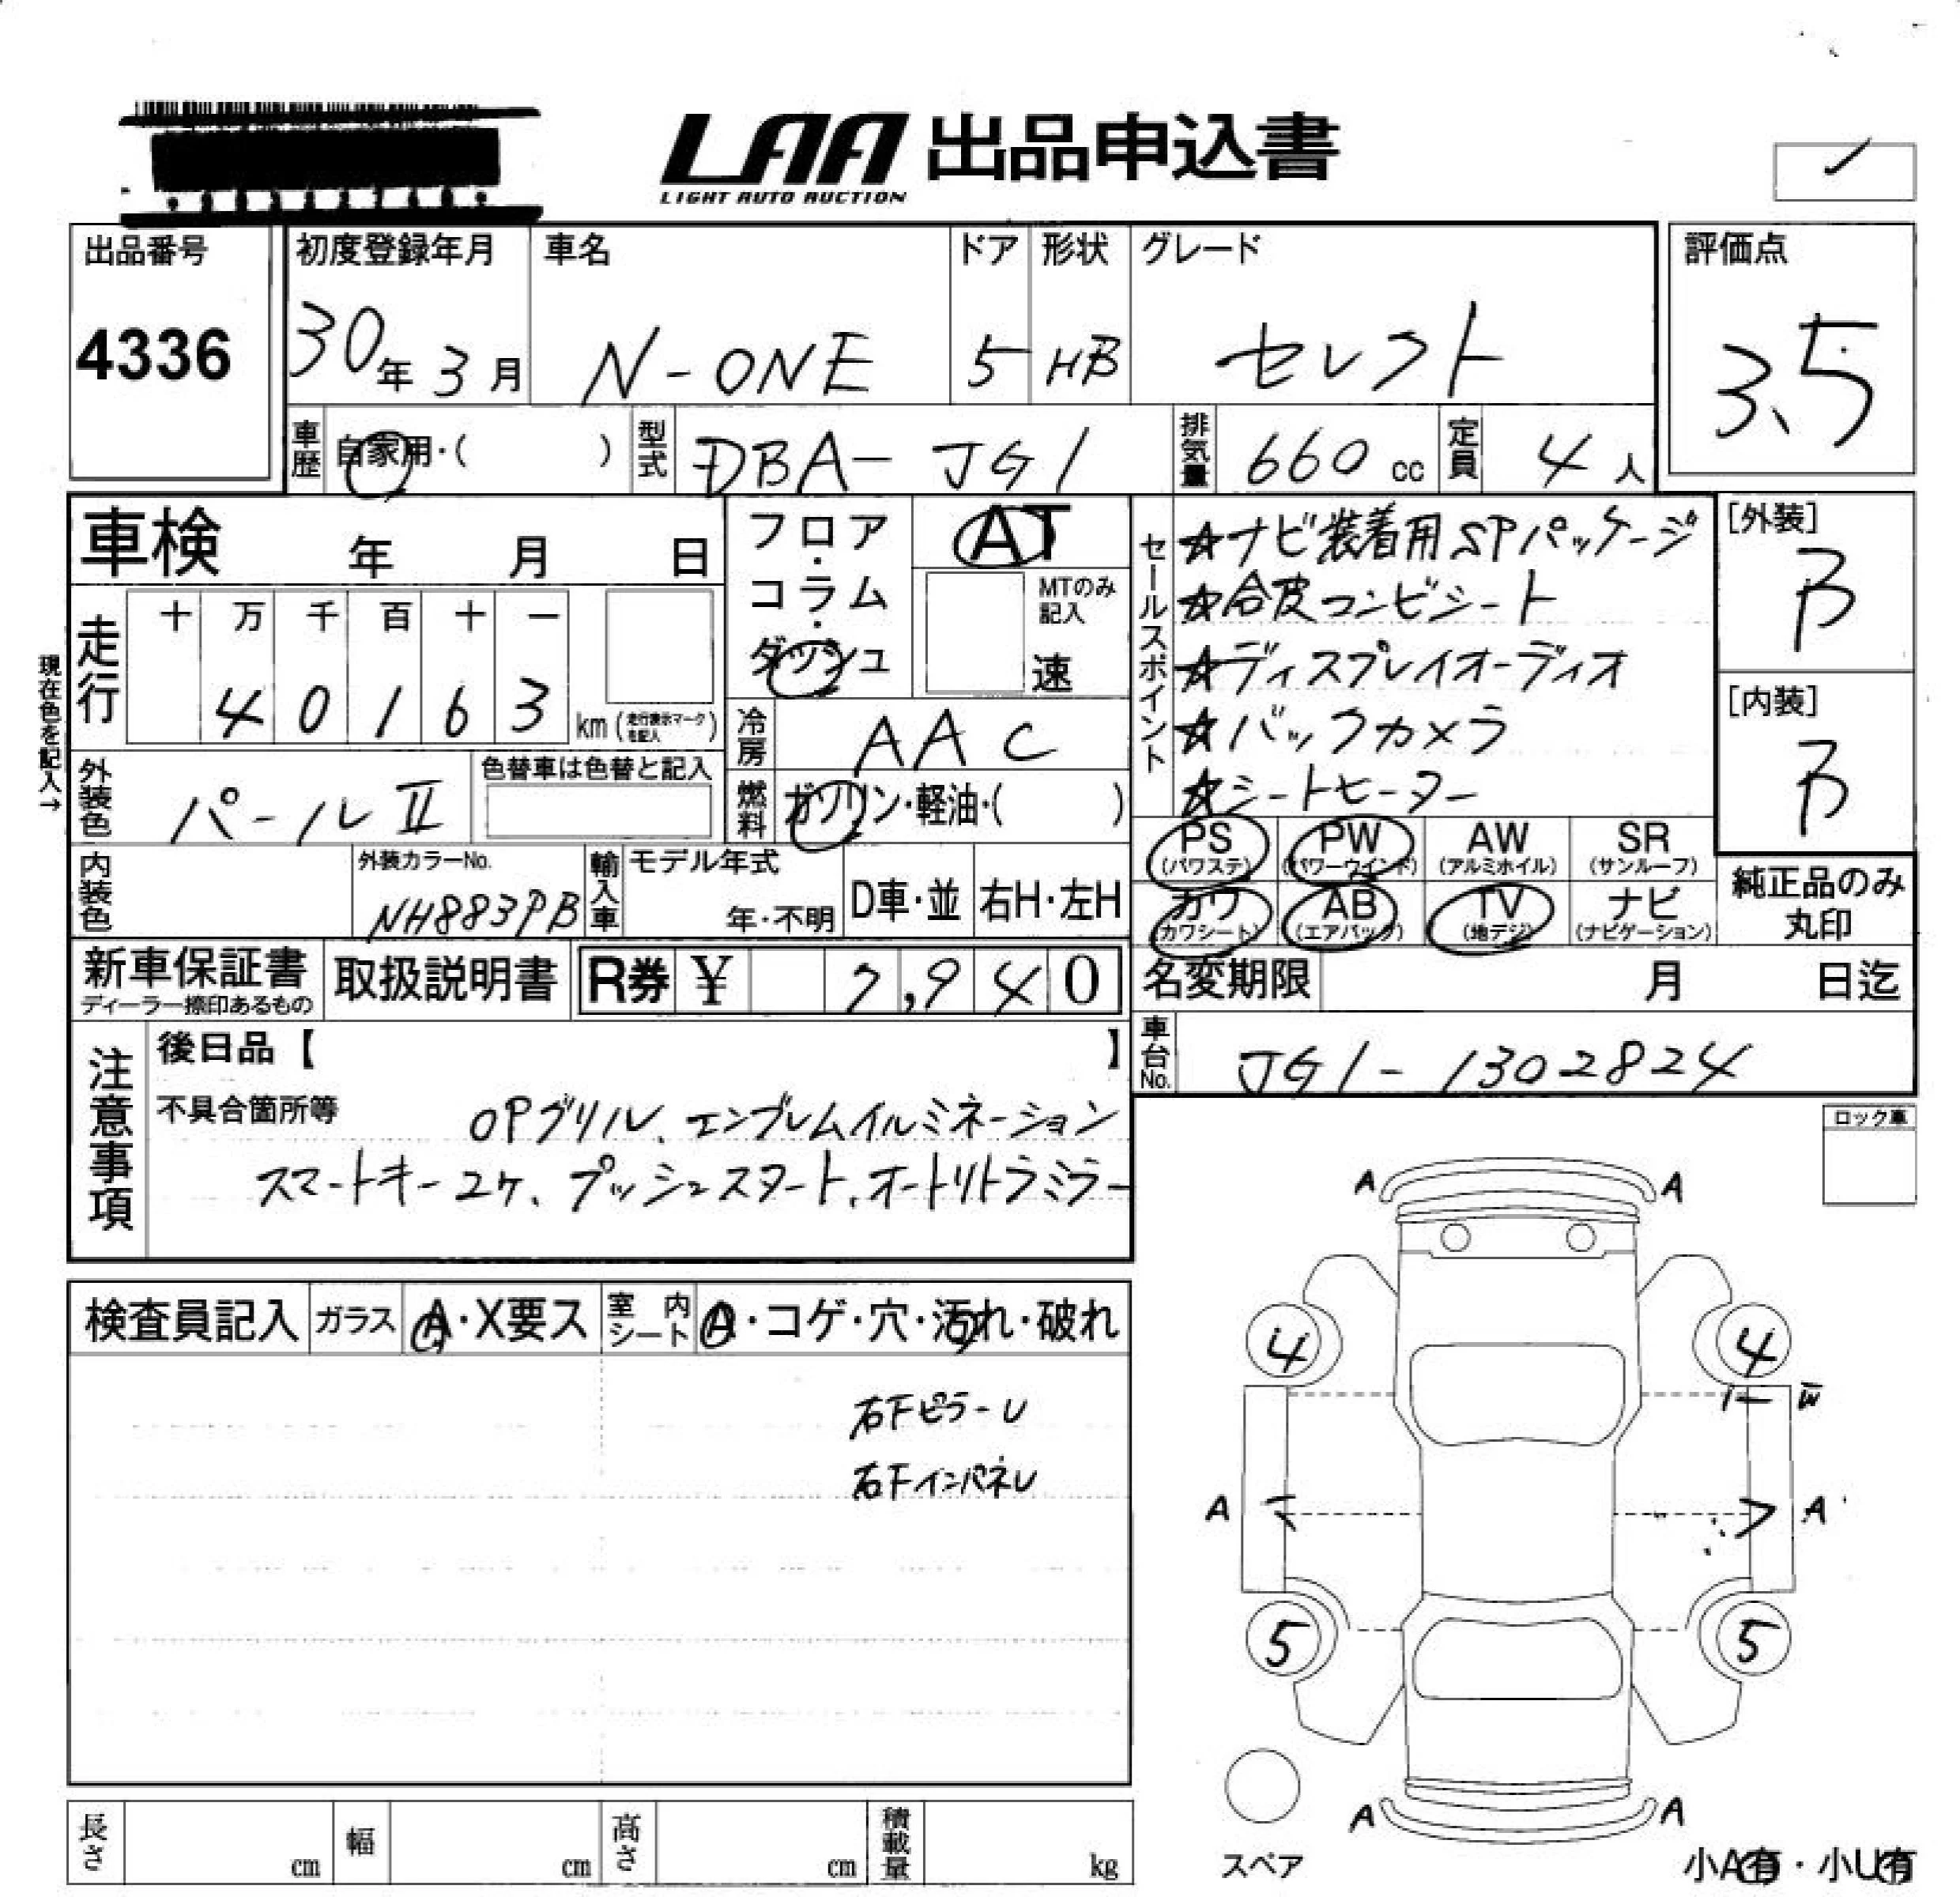 LAA 出品申込書
LIGHT AUTO AUCTION
出品番号
4336
初度登録年月
30年 3月
車名
N-ONE
ドア
5
形状
HB
グレード
セレクト
評価点
3.5
車歴
自家用・( )
型式
DBA-JG1
排気量
660 cc
定員
4 人
車検 年 月 日
フロア・コラム・ダッシュ
AT
MTのみ記入
速
セールスポイント
☆ナビ装着用SPパッケージ
☆合皮コンビシート
☆ディスプレイオーディオ
☆バックカメラ
☆シートヒーター
[外装]
B
[内装]
B
現在色を記入→
走行
十 万 千 百 十 一
4 0 1 6 3
km (走行表示マークを記入)
冷房
AAC
外装色
パールⅡ
色替車は色替と記入
燃料
ガソリン・軽油・( )
PS (パワステ)
PW (パワーウインド)
AW (アルミホイル)
SR (サンルーフ)
カワ (カワシート)
AB (エアバック)
TV (地デジ)
ナビ (ナビゲーション)
純正品のみ
丸印
内装色
外装カラーNo.
NH883PB
輸入車
モデル年式
年・不明
D車・並
右H・左H
新車保証書
ディーラー捺印あるもの
取扱説明書
R券 ¥ 7,940
名変期限 月 日迄
車台No.
JG1-1302824
注意事項
後日品【 】
不具合箇所等
OPグリル、エンブレムイルミネーション
スマートキー2ケ、プッシュスタート、オートリトラミラー
ロック車
検査員記入
ガラス
A・X要ス
室内シート
A・コゲ・穴・汚れ・破れ
右FピラーU
右FインパネU
A A
4 4
W
A A
5 5
A A
スペア
小A有・小U有
長さ cm
幅 cm
高さ cm
積載量 kg